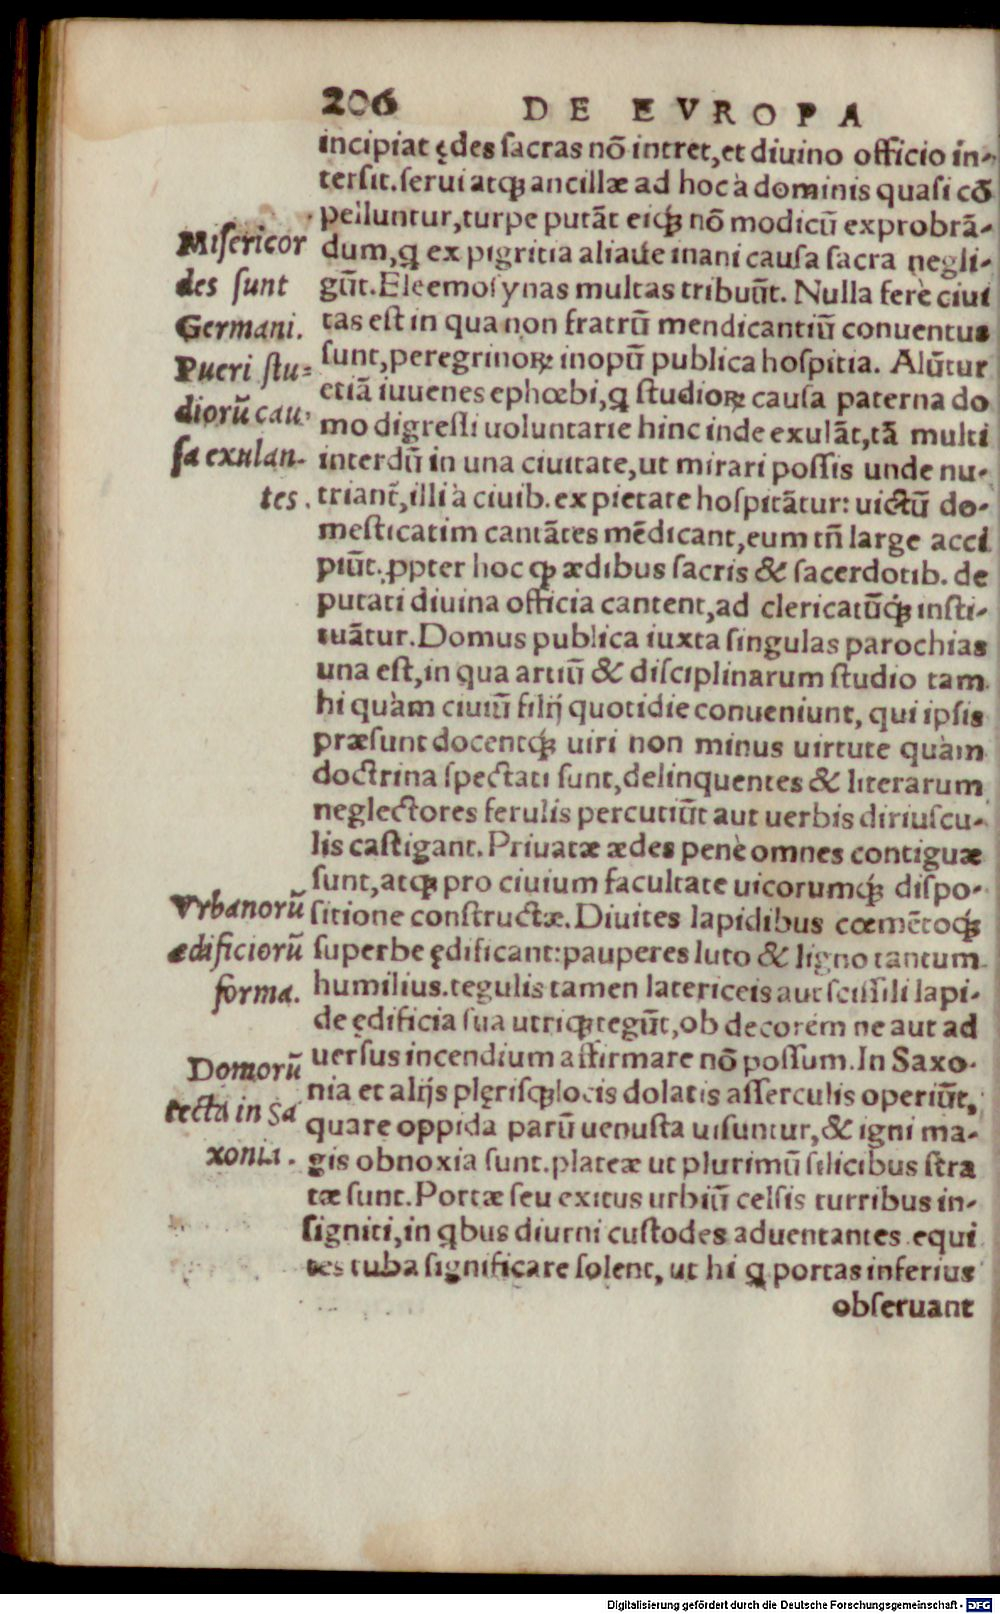 206 DE EVROPA
incipiat ędes ſacras nõ intret,et diuino officio in-
terſit.ſerui atq́ꝫ ancillæ ad hoc à dominis quaſi cõ
pelluntur,turpe putãt eiq́ꝫ nõ modicũ exprobrã-
dum,ꝗ ex pigritia aliaue inani cauſa ſacra negli-
gũt.Eleemoſynas multas tribuũt. Nulla ferè ciui
tas eſt in qua non fratrũ mendicantiũ conuentus
ſunt,peregrinoꝝ inopũ publica hoſpitia. Alũtur
etiã iuuenes ephœbi,ꝗ ſtudioꝝ cauſa paterna do
mo digreſſi uoluntarie hinc inde exulãt,tã multi
interdũ in una ciuitate,ut mirari poſſis unde nu-
triant̃,illi à ciuib.ex pietate hoſpitãtur: uictũ do-
meſticatim cantãtes mẽdicant,eum tñ large acci
piũt.ꝓpter hoc ꝙ ædibus ſacris & ſacerdotib. de
putati diuina officia cantent,ad clericatũq́ꝫ inſti-
tuãtur.Domus publica iuxta ſingulas parochias
una eſt,in qua artiũ & diſciplinarum ſtudio tam
hi quàm ciuiũ filij quotidie conueniunt, qui ipſis
præſunt docentq́ꝫ uiri non minus uirtute quàm
doctrina ſpectati ſunt,delinquentes & literarum
neglectores ferulis percutiũt aut uerbis diriuſcu-
lis caſtigant.Priuatæ ædes penè omnes contiguæ
ſunt,atqꝫ pro ciuium facultate uicorumq́ꝫ diſpo-
ſitione conſtructæ.Diuites lapidibus cœmẽtoq́ꝫ
ſuperbe ędificant:pauperes luto & ligno tantum
humilius.tegulis tamen latericeis aut ſciſſili lapi-
de ędificia ſua utriqꝫ tegũt,ob decorem ne aut ad
uerſus incendium affirmare nõ poſſum.In Saxo-
nia et alijs plęriſqꝫ locis dolatis aſſerculis operiũt,
quare oppida parũ uenuſta uiſuntur,& igni ma-
gis obnoxia ſunt.plateæ ut plurimũ ſilicibus ſtra
tæ ſunt.Portæ ſeu exitus urbiũ celſis turribus in-
ſigniti,in ꝗbus diurni cuſtodes aduentantes equi
tes tuba ſignificare ſolent, ut hi ꝗ portas inferius
obſeruant
Miſericor
des ſunt
Germani.
Pueri ſtu-
diorũ cau-
ſa exulan-
tes.
Vrbanorũ
ædificiorũ
forma.
Domorũ
tecta in Sa
xonia.
Digitalisierung gefördert durch die Deutsche Forschungsgemeinschaft - DFG